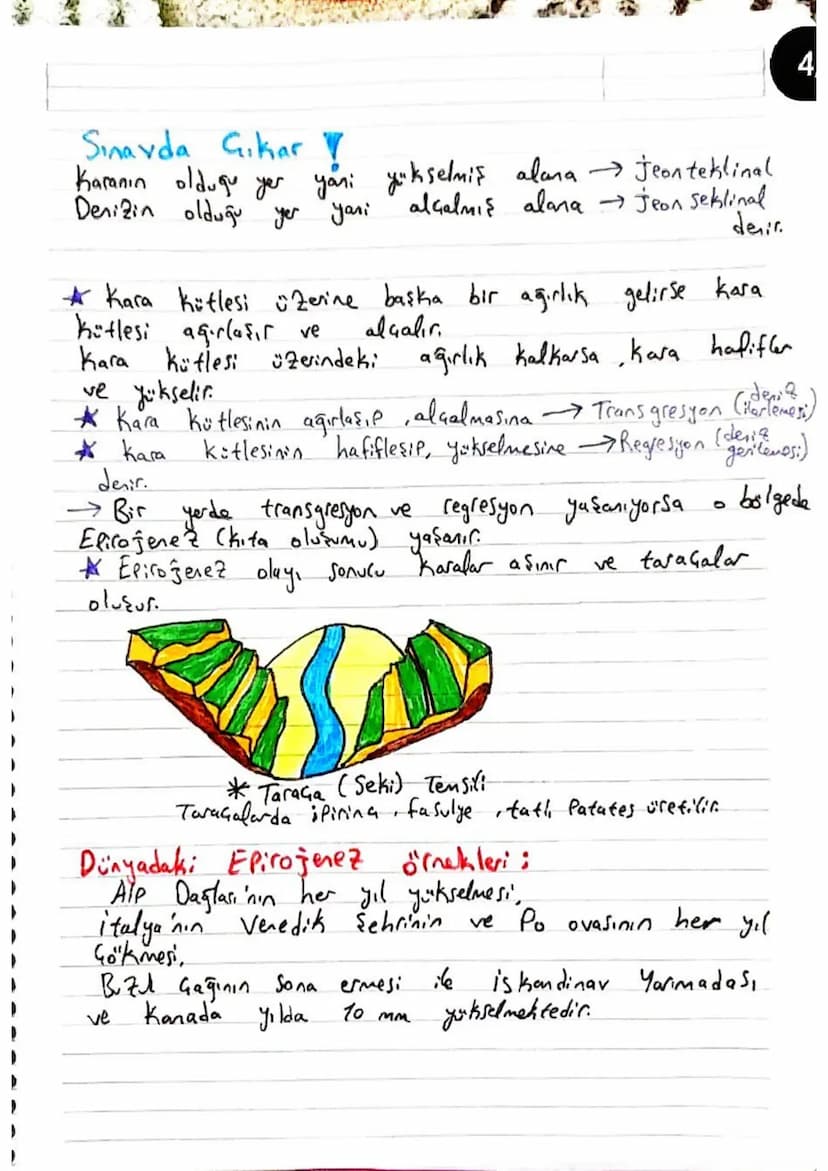 4
Sınavda Çıkar !
Karanın olduğu yer yani yükselmiş alana → jeonteklinal
Denizin olduğu yer yani alçalmış alana → jeon seklinal
denir.
★ Kara kütlesi üzerine başka bir ağırlık gelirse kara
kütlesi ağırlaşır ve alçalır.
Kara kütlesi üzerindeki ağırlık kalkarsa, kara hafifler
ve yükselir.
★ Kara kütlesinin ağırlaşıp, alçalmasına → Transgresyon (deniz ilerlemesi)
★ Kara kütlesinin hafifleşip, yükselmesine → Regresyon (deniz gerilemesi)
denir.
→ Bir yerde transgresyon ve regresyon yaşanıyorsa o bölgede
Epirojenez (kıta oluşumu) yaşanır.
★ Epirojenez olayı sonucu karalar aşınır ve taraçalar
oluşur.
* Taraça (Seki) Temsili
Taraçalarda ; Pirinç, fasulye, tatlı Patates üretilir.
Dünyadaki Epirojenez örnekleri :
Alp Dağları'nın her yıl yükselmesi,
İtalya'nın Venedik şehrinin ve Po ovasının her yıl
Çökmesi,
Buzul Çağının sona ermesi ile İskandinav Yarımadası
ve Kanada yılda 10 mm yükselmektedir.